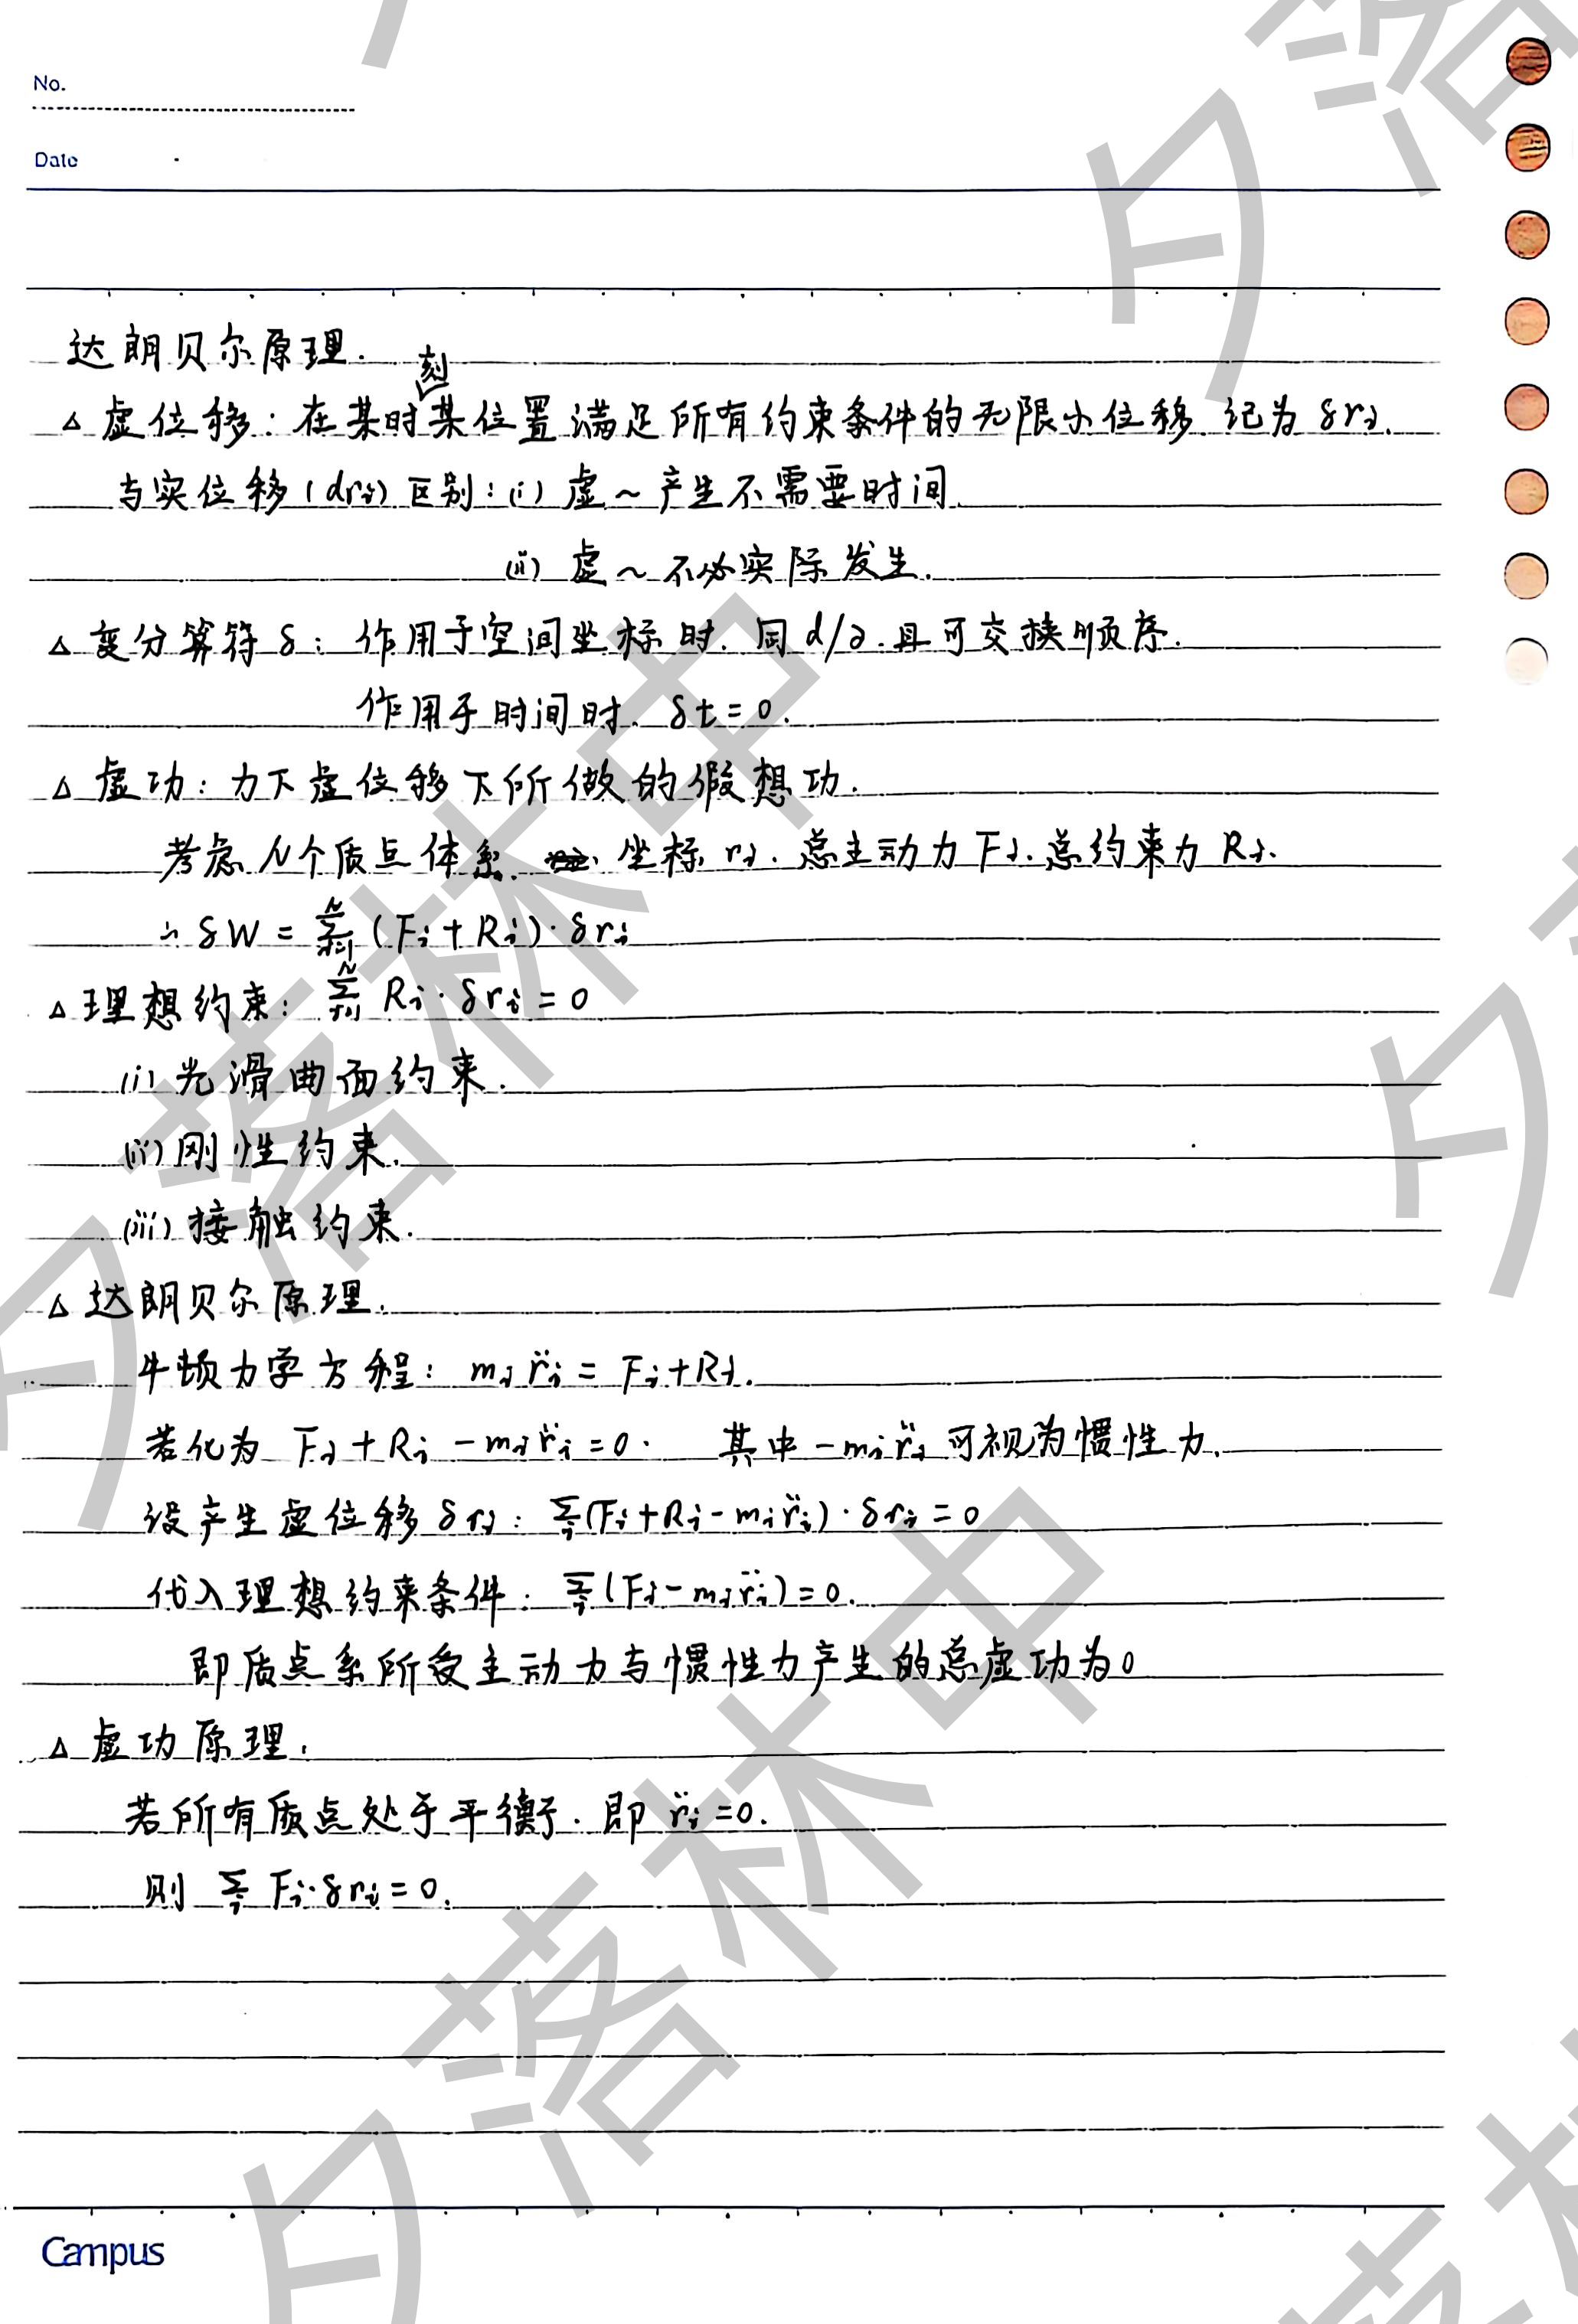 No.
Date
达朗贝尔原理.
△ 虚位移: 在某时刻某位置满足所有约束条件的无限小位移. 记为 δrᵢ.
与实位移 (drᵢ) 区别: (i) 虚~产生不需要时间.
(ii) 虚~不必实际发生.
△ 变分算符 δ: 作用于空间坐标时. 同 d/∂. 且可交换顺序.
作用于时间时. δt=0.
△ 虚功: 力下虚位移下所做的假想功.
考虑 N个质点体系. 坐标 rᵢ. 总主动力 Fᵢ. 总约束力 Rᵢ.
∴ δW = ∑ᵢ₌₁ᴺ (Fᵢ+Rᵢ)·δrᵢ
△ 理想约束: ∑ᵢ₌₁ᴺ Rᵢ·δrᵢ=0
(i) 光滑曲面约束.
(ii) 刚性约束.
(iii) 接触约束.
△ 达朗贝尔原理.
牛顿力学方程: mᵢr̈ᵢ = Fᵢ+Rᵢ.
若化为 Fᵢ+Rᵢ-mᵢr̈ᵢ=0. 其中 -mᵢr̈ᵢ 可视为惯性力.
设产生虚位移 δrᵢ: ∑ᵢ(Fᵢ+Rᵢ-mᵢr̈ᵢ)·δrᵢ=0
代入理想约束条件: ∑ᵢ(Fᵢ-mᵢr̈ᵢ)=0.
即质点系所受主动力与惯性力产生的总虚功为0
△ 虚功原理.
若所有质点处于平衡. 即 r̈ᵢ=0.
则 ∑ᵢ Fᵢ·δrᵢ=0.
Campus
夕落林中
夕落林中